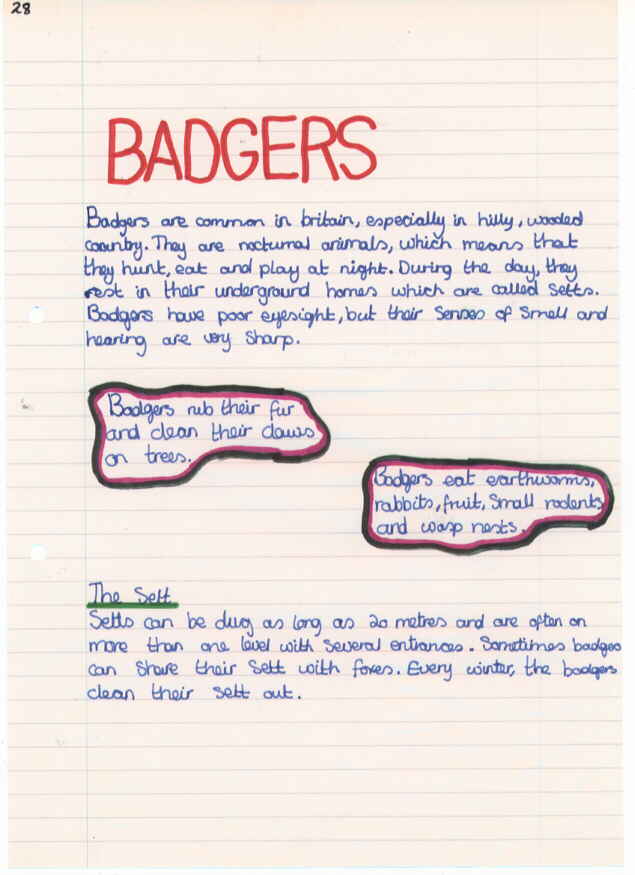 28
BADGERS
Badgers are common in britain, especially in hilly, wooded
country. They are nocturnal animals, which means that
they hunt, eat and play at night. During the day, they
rest in their underground homes which are called Setts.
Badgers have poor eyesight, but their senses of Smell and
hearing are very sharp.
Badgers rub their fur
and clean their claws
on trees.
Badgers eat earthworms,
rabbits, fruit, Small rodents
and wasp nests.
The Sett
Setts can be dug as long as 20 metres and are often on
more than one level with several entrances. Sometimes badges
can share their Sett with foxes. Every winter, the badgers
clean their sett out.